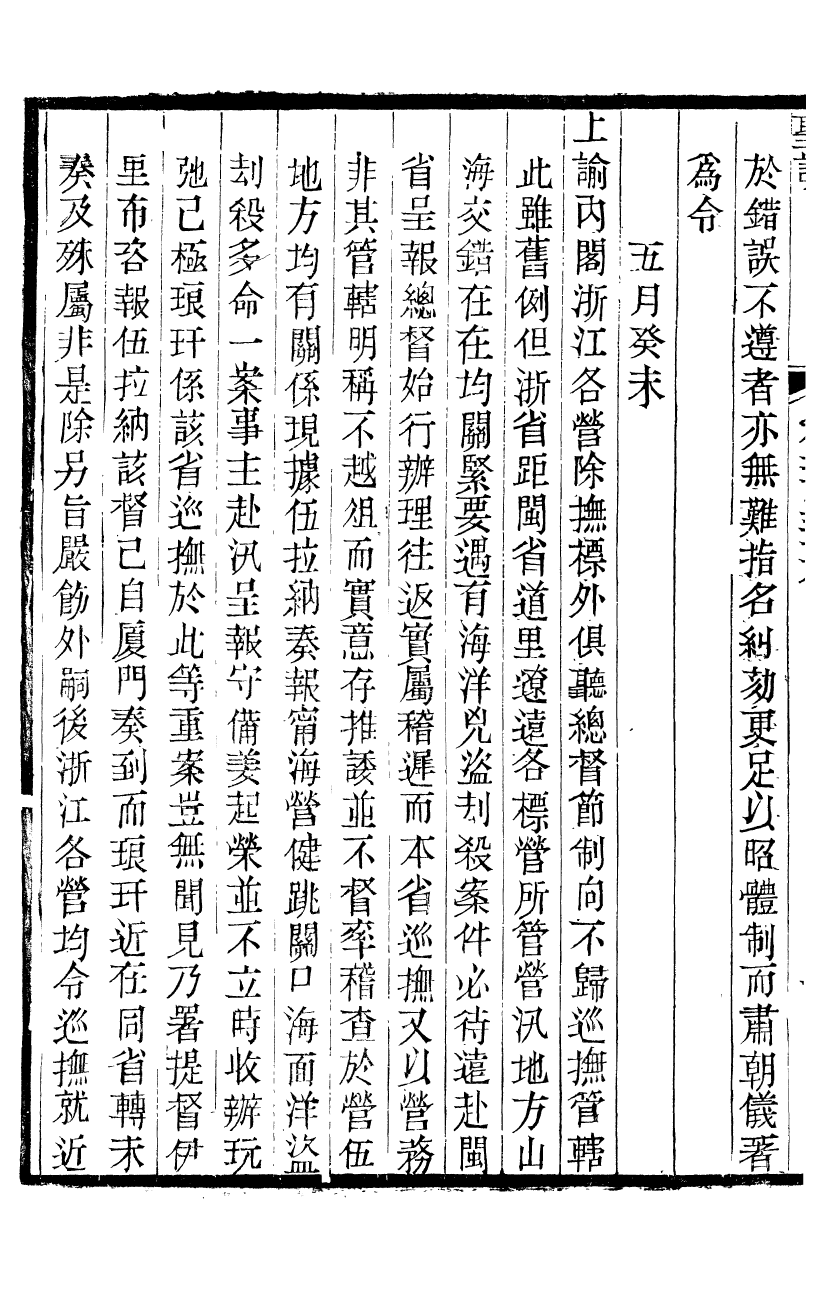 於錯誤不遵者亦無難指名糾劾更足以昭體制而肅朝儀著
為令
五月癸未
上諭內閣浙江各營除撫標外俱聽總督節制向不歸巡撫管轄
此雖舊例但浙省距閩省道里遼遠各標營所管營汛地方山
海交錯在在均關緊要遇有海洋兇盜刦殺案件必待遠赴閩
省呈報總督始行辦理往返實屬稽遲而本省巡撫又以營務
非其管轄明稱不越俎而實意存推諉並不督率稽查於營伍
地方均有關係現據伍拉納奏報甯海營健跳關口海面洋盜
刦殺多命一案事主赴汛呈報守備姜起榮並不立時收辦玩
弛已極琅玕係該省巡撫於此等重案豈無聞見乃署提督伊
里布咨報伍拉納該督已自厦門奏到而琅玕近在同省轉未
奏及殊屬非是除另旨嚴飭外嗣後浙江各營均令巡撫就近